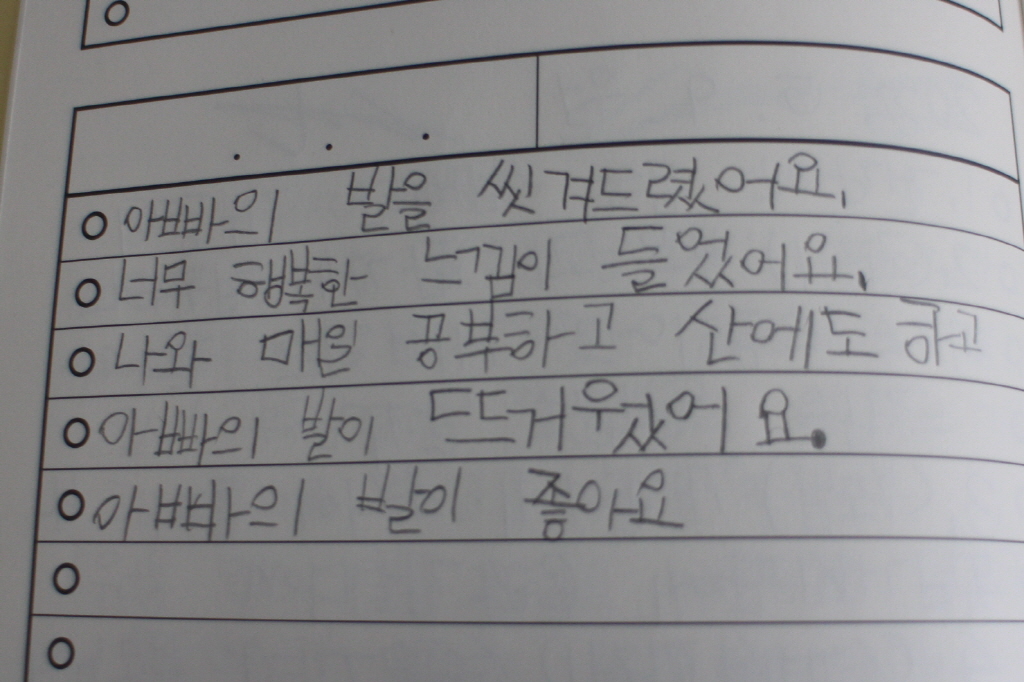 아빠의 발을 씻겨드렸어요.
너무 행복한 느낌이 들었어요.
나와 매일 공부하고 산에도 하고
아빠의 발이 드드거웠어요.
아빠의 발이 좋아요